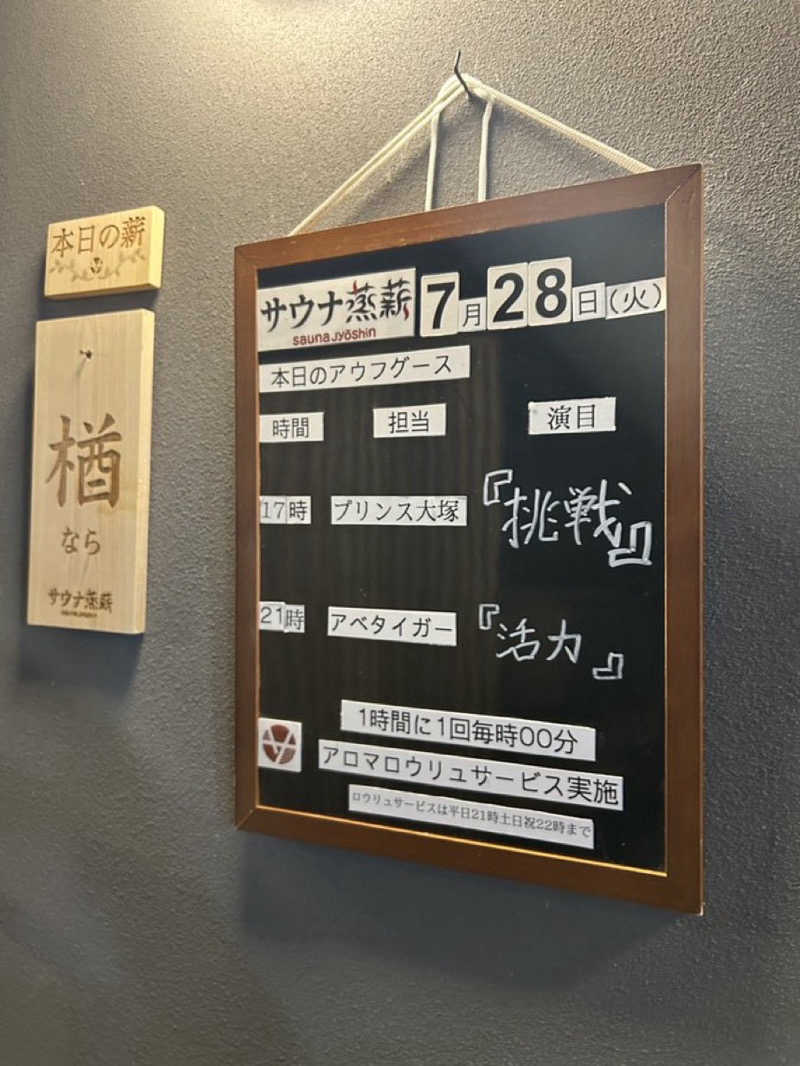 本日の薪
楢
なら
サウナ蒸薪
サウナ蒸薪 7月28日(火)
sauna jyōshin
本日のアウフグース
時間 担当 演目
17時 プリンス大塚 『挑戦』
21時 アベタイガー 『活力』
1時間に1回毎時00分
アロマロウリュサービス実施
ロウリュサービスは平日21時土日祝22時まで